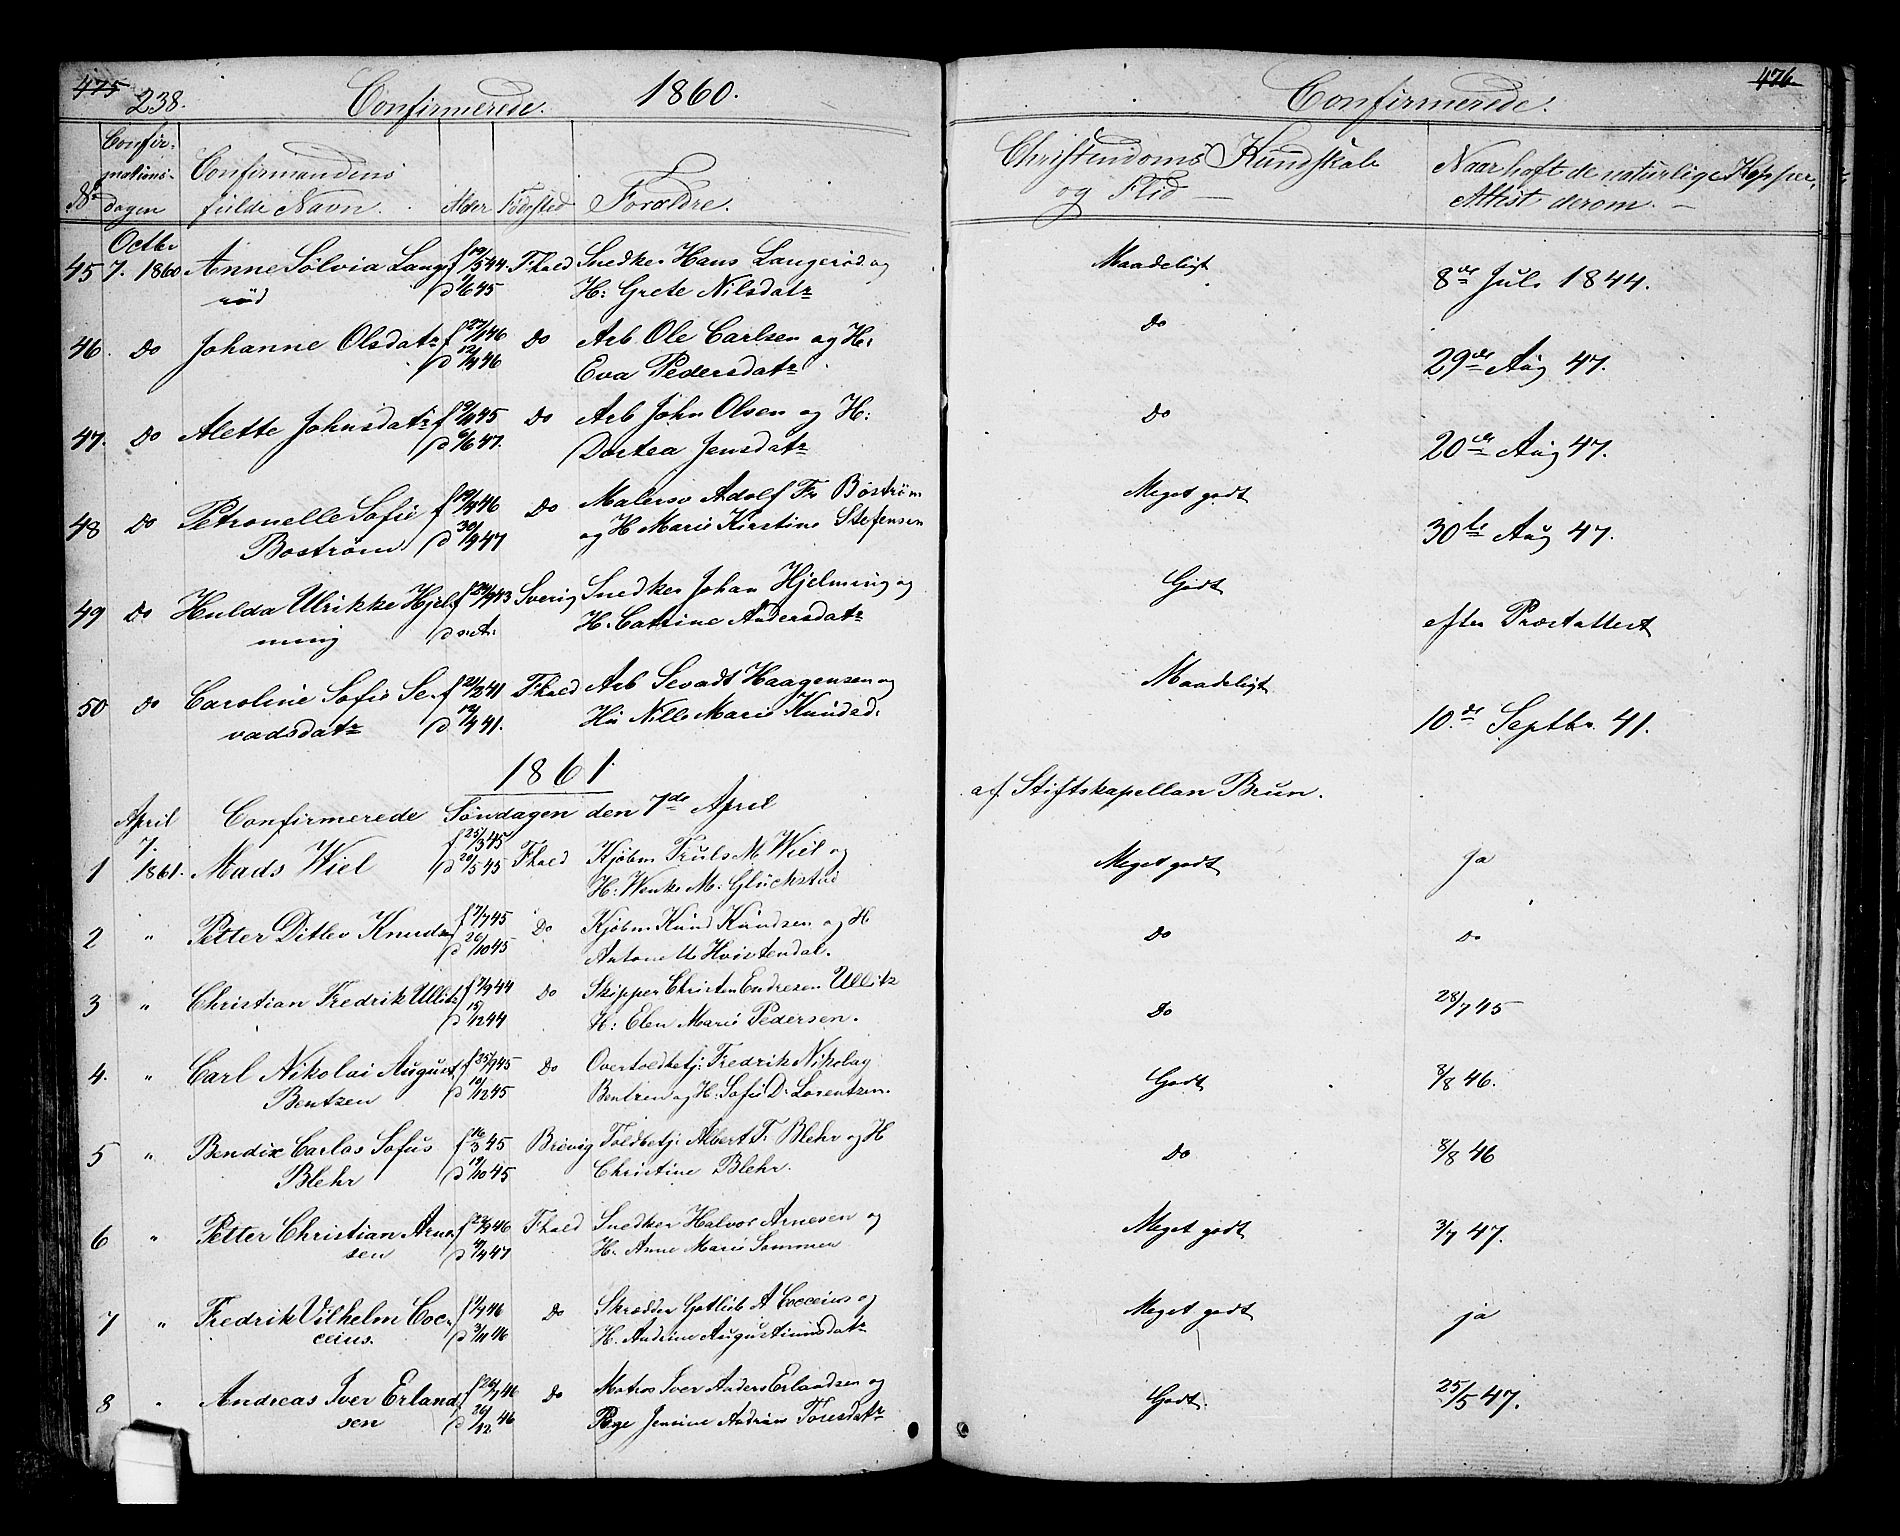 475 238. Confirmerede. 1860.
No Confirmationsdagen Confirmandens fulde Navn. Alder Fødested Forældre.
Octbr
45 7. 1860 Anne Sølvia Lange f 19/5 44. Fhald Snedker Hans Langerød og
rød d 1/6 45 H: Grete Nilsdatr
46. Do Johanne Olsdatr f 27/1 46 Do Arb Ole Carlsen og H:
d 12/4 46 Eva Pedersdatr
47. Do Alette Johnsdatr f 45 Do Arb John Olsen og H:
d 6/6 47. Dortea Jensdatr
48 Do Petronelle Sofie f 46 Do Malersv Adolf Fr Bostrøm
Bostrøm d 47 og H Marie Kirstine Stefensen
49 Do Hulda Ulrikke Hjel f 43 Sverig Snedker Johan Hjelming og
ming H. Catrine Andersdatr
50 Do Caroline Sofie Se f 21/2 41 Fhald Arb Sevadt Haagensen og
vadsdatr d 12/4 41. Hu Nille Marie Knudsd.
1861
April Confirmerede Søndagen den 7de April
1 7. 1861. Mads Wiel f 25/3 45 Fhald Kjøbm Truls M. Wiel og
d 20/5 45 H: Wenke M. Glückstad
2 " Petter Ditlev Knudsen f 7/7 45 Do Kjøbm Knud Knudsen og H
d 26/10 45 Antonette Hvistendal.
3 " Christian Fredrik Ullitz f 7/9 44 Do Skipper Christen Endresen Ullitz
d 15/12 44 H: Elen Marie Pedersen.
4. " Carl Nikolai August f 25/9 45 Do Overtoldbetj: Fredrik Nikolay
Bentzen d 10/12 45 Bentzen og H. Sofie D. Lorentzen.
5 " Bendix Carlos Sofus f 16/3 45 Brevig Toldbetj: Albert F. Blehr og H
Blehr d 19/10 45 Christine Blehr.
6 " Petter Christian Arne f 46 Fhald Snedker Halvor Arnesen og
sen d 4/4 47 H. Anne Marie Sommer
7 " Fredrik Vilhelm Coc f 46 Do Skrædder Gotlieb A Cocceius og
ceius. d 3/11 46 H. Andrine Augustinusdatr
8 " Andreas Iver Erland f 26/7 46 Do Matros Iver Anders Erlandsen og
sen d 26/12 46 Pige Jensine Andrine Toresdatr
476
Confirmerede.
Christendoms Kundskab og Flid — Naar haft de naturlige Kopper, Attest derom. —
Maadeligt 8de Juli 1844.
Do 29de Aug 47.
Do 20de Aug 47.
Meget godt 30te Aug 47.
Godt efter Præstattest
Maadeligt 10.de Septbr. 41.
af Stiftskapellan Brun.
Meget godt ja
Do Do
Do 28/7 45
Godt 8/8 46.
Do 8/8 46
Meget godt 3/7 47.
Meget godt ja
Godt. 25/5 47.